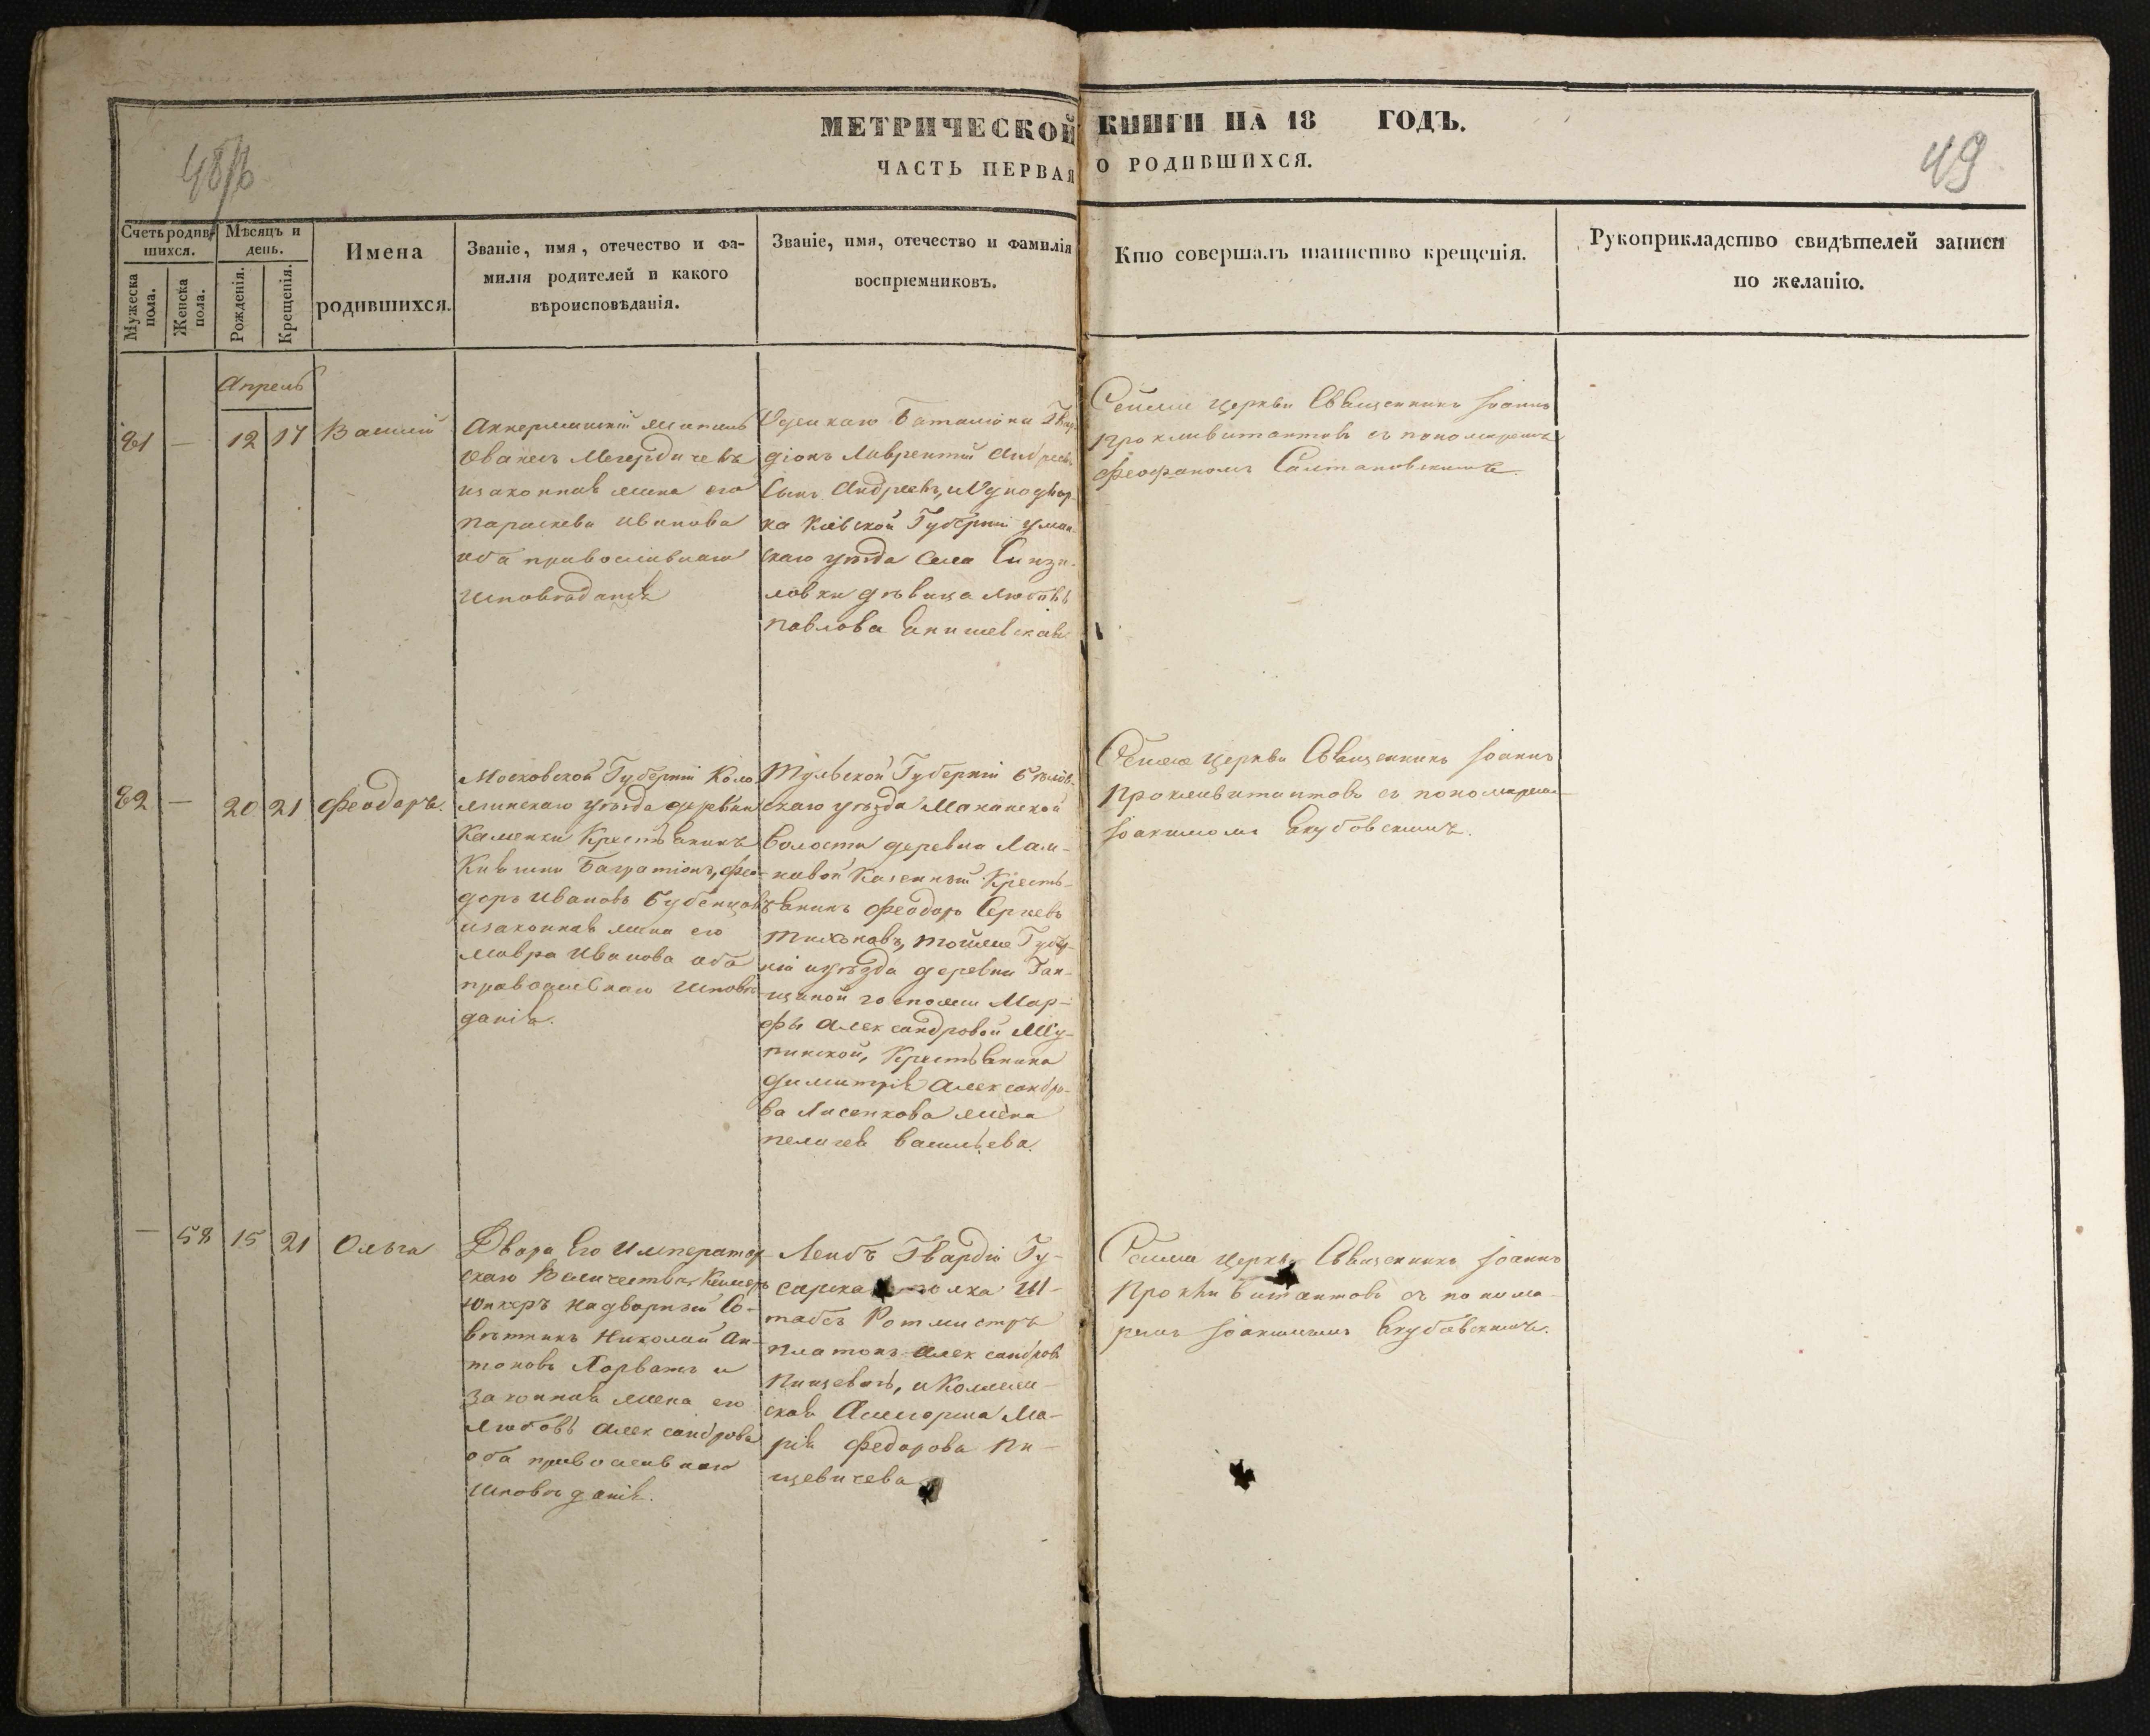 МЕТРИЧЕСКОЙ КНИГИ НА 18 ГОДЪ.
ЧАСТЬ ПЕРВАЯ О РОДИВШИХСЯ.
49
Счетъ родившихся.
Мужеска пола.
Женска пола.
Мѣсяцъ и день.
Рожденія.
Крещенія.
Имена
родившихся.
Званіе, имя, отечество и фа-
милія родителей и какого
вѣроисповѣданія.
Званіе, имя, отечество и фамилія
воспріемниковъ.
Кто совершалъ таинство крещенія.
Рукоприкладство свидѣтелей записи
по желанію.
Апрель
61 — 12 17
Василій
Аккерманскій
Ованесъ Мегердичевъ
изаконная жена его
Параскева Иванова
оба православнаго
исповѣданія
Баталіона
Лаврентій Андреевъ
Сынъ Андреевъ, и
ка Кіевской Губерніи Уман-
скаго уѣзда Села
ловки дѣвица Любовь
Павлова
Сейже церкви Священникъ Іоаннъ
съ пономаремъ
Феофаномъ Салтановскимъ.
62 — 20 21
Феодоръ.
Московской Губерніи Коло
менскаго уѣзда деревни
Каменки Крестьянинъ
Княгини Багратіонъ, Фео-
доръ Ивановъ Бубенцовъ
изаконная жена его
Мавра Иванова оба
православнаго исповѣ
данія.
Тульской Губерніи Бѣлев-
скаго уѣзда
волости деревни
Казенный Кресть-
янинъ Феодоръ Сергеевъ
Тихоновъ, тойже Губер-
ніи иуѣзда деревни Ган-
госпожи Мар-
фы Александровой
Крестьянина
Димитрія Александро-
ва Лисенкова жена
Пелагея Васильева.
Сейже Церкви Священникъ Іоаннъ
съ пономаремъ
Іоакимомъ Якубовскимъ.
— 58 15 21
Ольга
Двора Его Император
скаго Величества Камеръ
юнкеръ Надворный Со-
вѣтникъ Николай Ан-
тоновъ и
законная жена его
Любовь Александрова
оба православнаго
исповѣданія.
Лейбъ Гвардіи Гу-
полка Ш-
табсъ Ротмистръ
Платонъ Александровъ
Пищевичъ, и Коллеж-
ская Асесорша Ма-
рія Федорова Пи-
щевичева
Сейже церкви Священникъ Іоаннъ
съ понома-
ремъ Іоакимомъ Якубовскимъ.